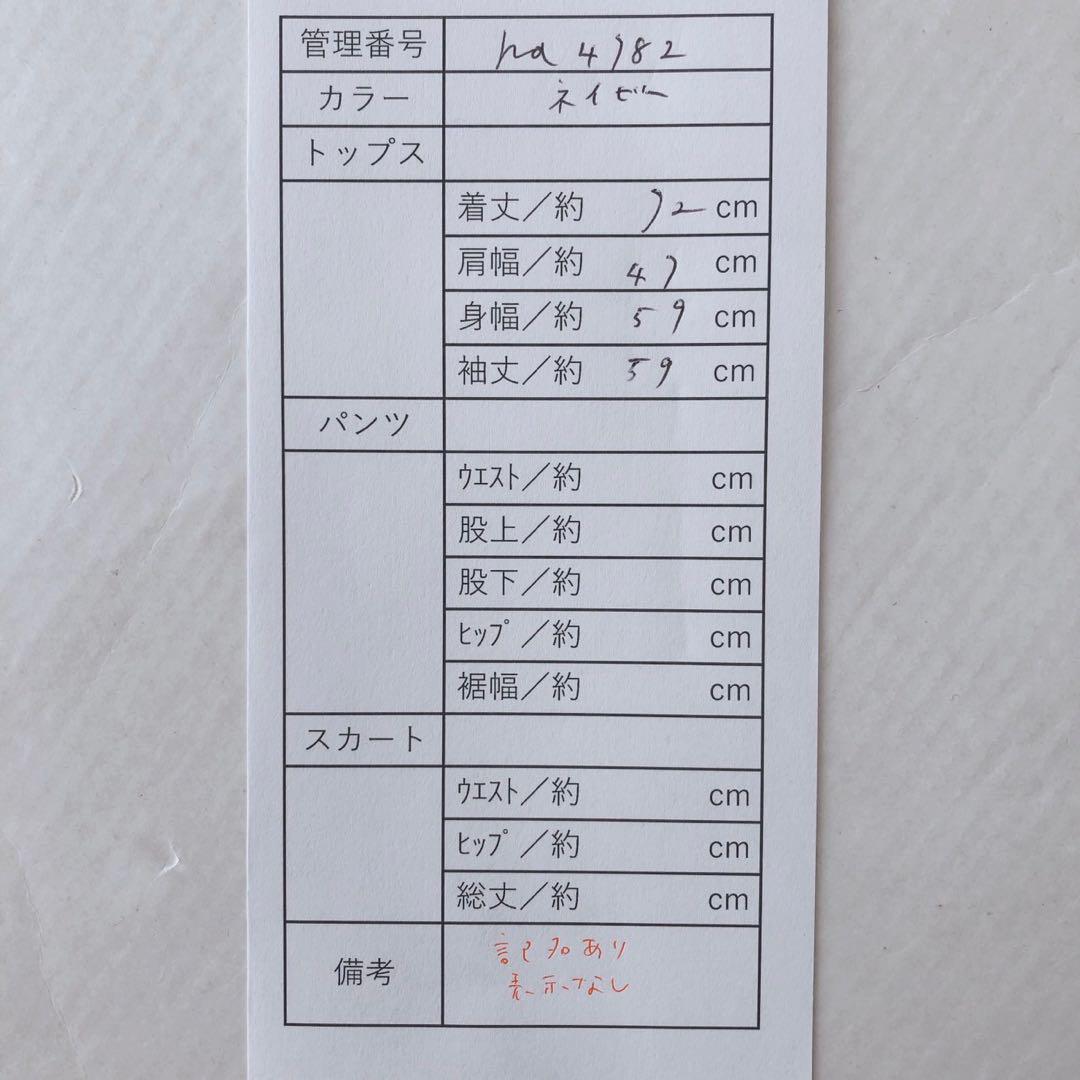 管理番号 na 4782
カラー ネイビー
トップス
着丈／約 72 cm
肩幅／約 47 cm
身幅／約 59 cm
袖丈／約 59 cm
パンツ
ｳｴｽﾄ／約 cm
股上／約 cm
股下／約 cm
ﾋｯﾌﾟ／約 cm
裾幅／約 cm
スカート
ｳｴｽﾄ／約 cm
ﾋｯﾌﾟ／約 cm
総丈／約 cm
備考 記名あり
表示なし